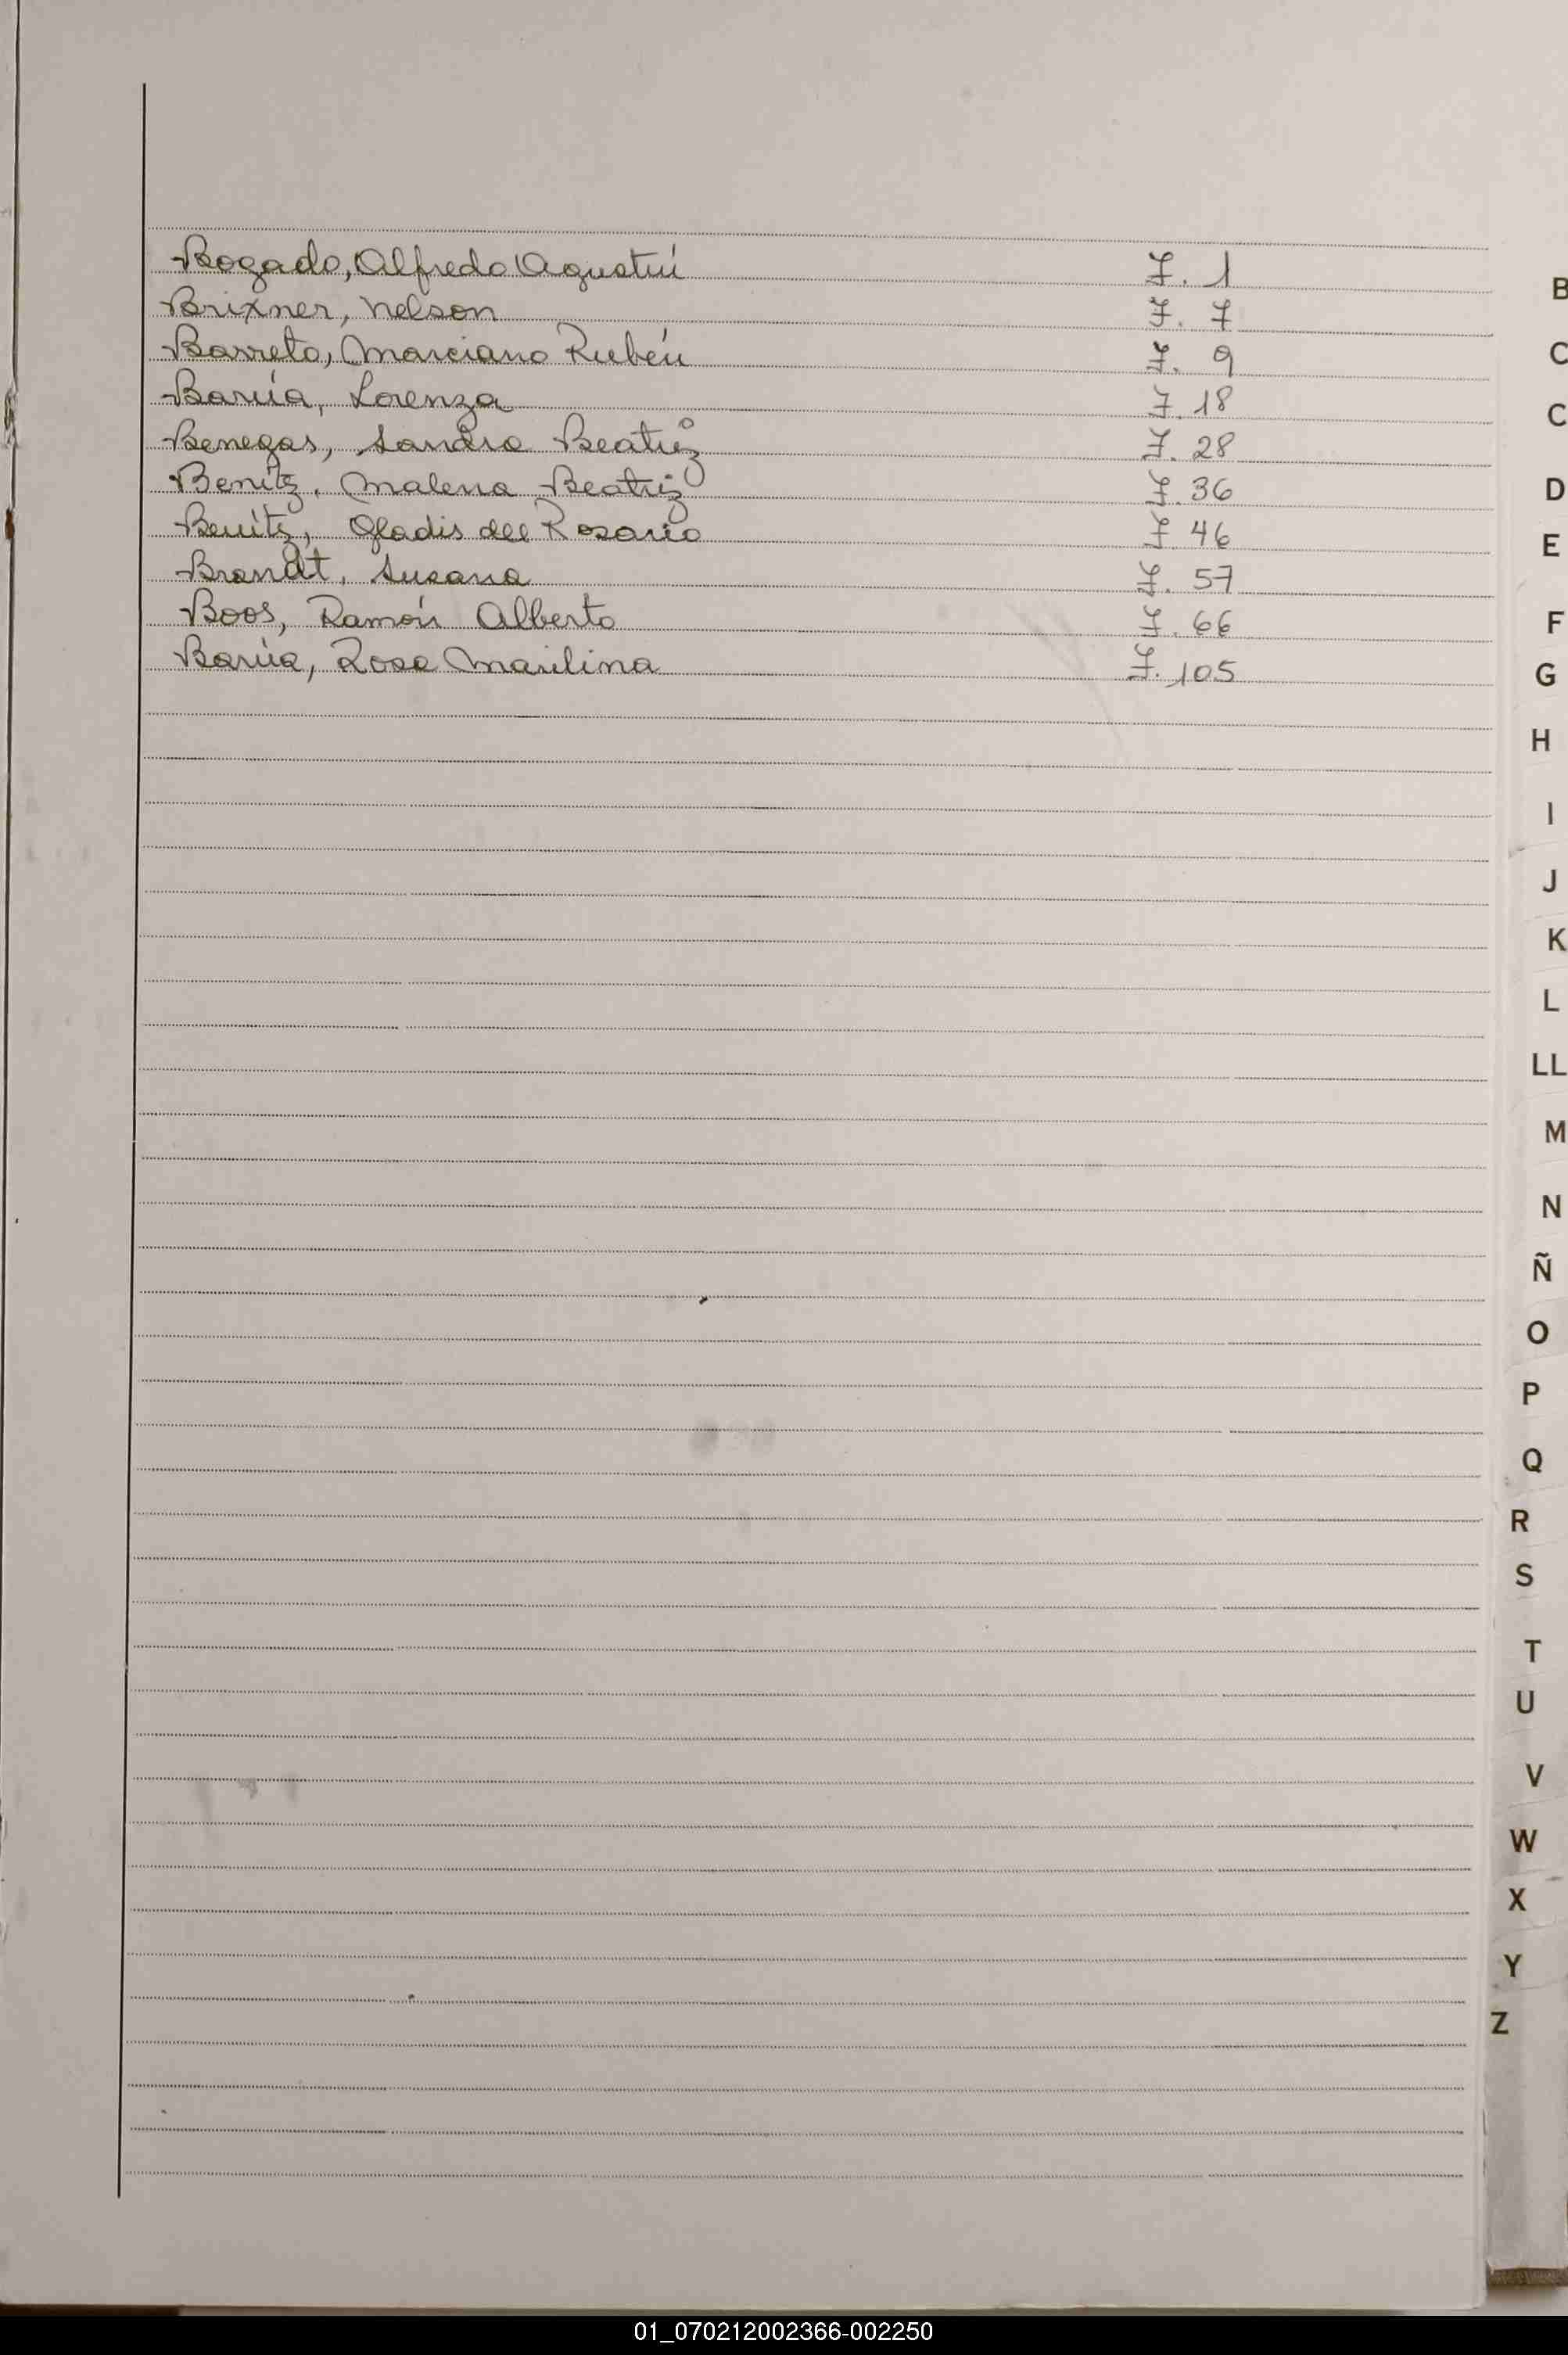 Bogado, Alfredo Agustín F. 1
Brixner, Nelson F. 7
Barreto, Marciano Rubén F. 9
Barúa, Lorenza F. 18
Benegas, Sandra Beatriz F. 28
Benítz, Malena Beatriz F. 36
Benítz, Gladis del Rosario F. 46
Brandt, Susana F. 57
Boos, Ramón Alberto F. 66
Barúa, Rosa Marilina F. 105
B
C
C
D
E
F
G
H
I
J
K
L
LL
M
N
Ñ
O
P
Q
R
S
T
U
V
W
X
Y
Z
01_070212002366-002250